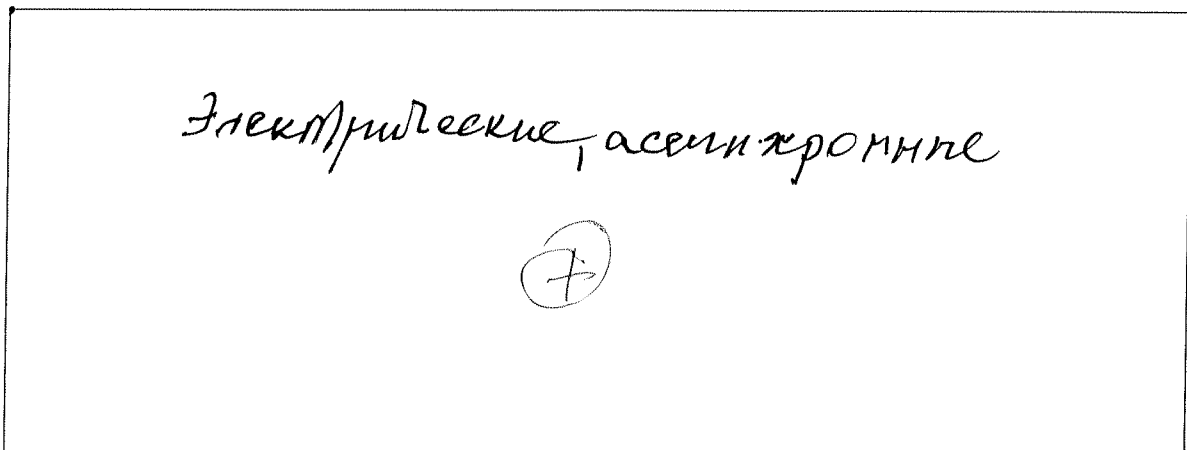 Электрические, асинхронные
+